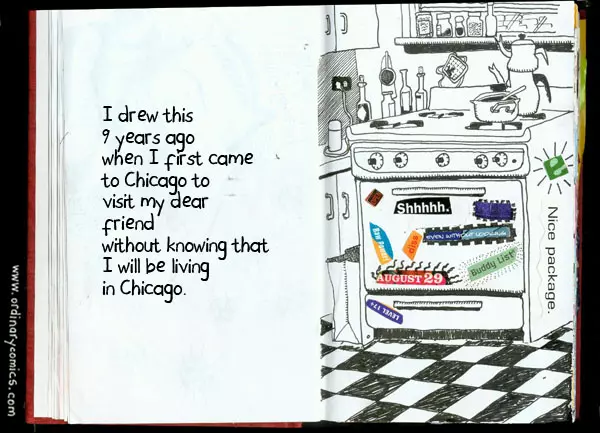 I drew this
9 years ago
when I first came
to Chicago to
visit my dear
friend
without knowing that
I will be living
in Chicago.
www.ordinarycomics.com
Shhhhh.
diss
Buddy List
AUGUST 29
LEVEL 17+
Nice package.